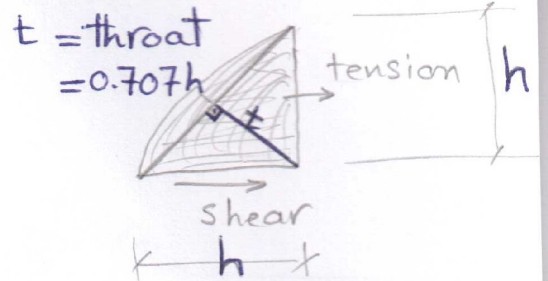 t = throat
= 0.707h
tension
h
t
shear
h